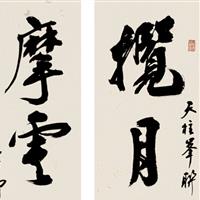 天柱峯聯
攬月
摩雲